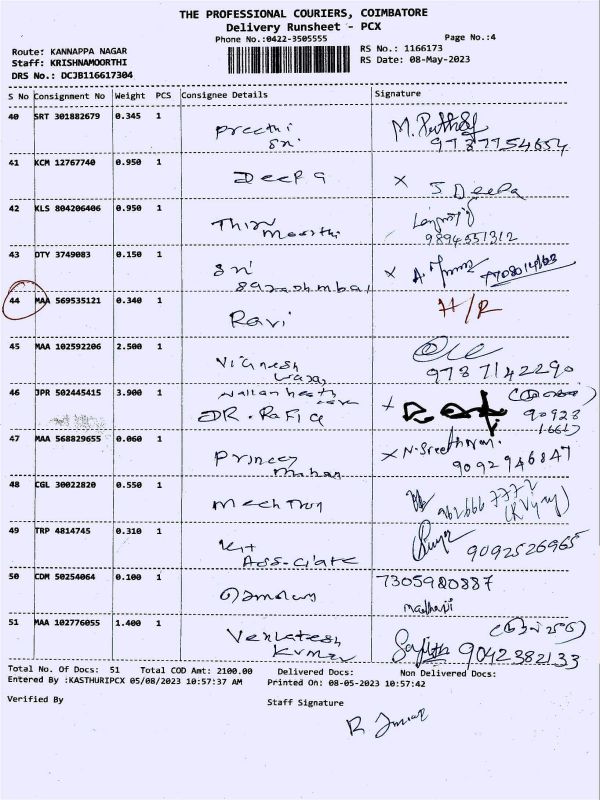 THE PROFESSIONAL COURIERS, COIMBATORE
Delivery Runsheet - PCX
Phone No.:0422-3505555
Page No.:4
Route: KANNAPPA NAGAR
RS No.: 1166173
Staff: KRISHNAMOORTHI
RS Date: 08-May-2023
DRS No.: DCJB116617304
S No Consignment No Weight PCS Consignee Details Signature
40 SRT 301882679 0.345 1
Preethi
Sri
41 KCM 12767740 0.950 1
Deepa
X J Deepa
42 KLS 804206406 0.950 1
Thiru
Moorthi
9894551312
43 DTY 3749083 0.150 1
Sri
X
44 MAA 569535121 0.340 1
Ravi
H/R
45 MAA 102592206 2.500 1
Vignesh
9787142290
46 JPR 502445415 3.900 1
DR. Rafiq
47 MAA 568829655 0.060 1
Princey
Mohan
X N. Sreethyayi
9092946847
48 CGL 30022820 0.550 1
49 TRP 4814745 0.310 1
9092526965
50 CDM 50254064 0.100 1
7305980887
51 MAA 102776055 1.400 1
Venkatesh
Kumar
Sajith 9042382133
Total No. Of Docs: 51 Total COD Amt: 2100.00 Delivered Docs: Non Delivered Docs:
Entered By :KASTHURIPCX 05/08/2023 10:57:37 AM Printed On: 08-05-2023 10:57:42
Verified By Staff Signature